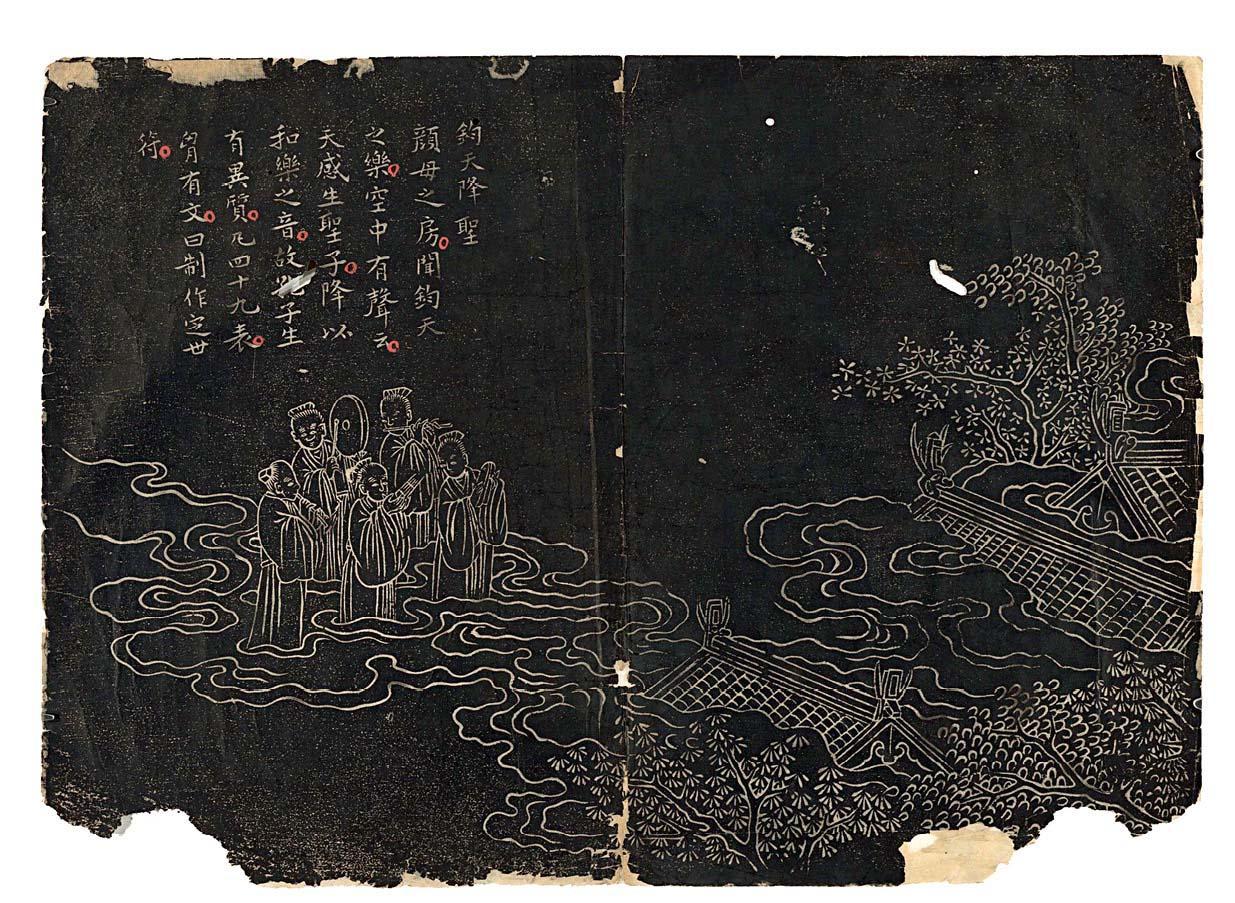 鈞天降聖
顏母之房聞鈞天
之樂空中有聲云
天感生聖子降以
和樂之音故孔子生
有異質凡四十九表
胷有文曰制作定世
符